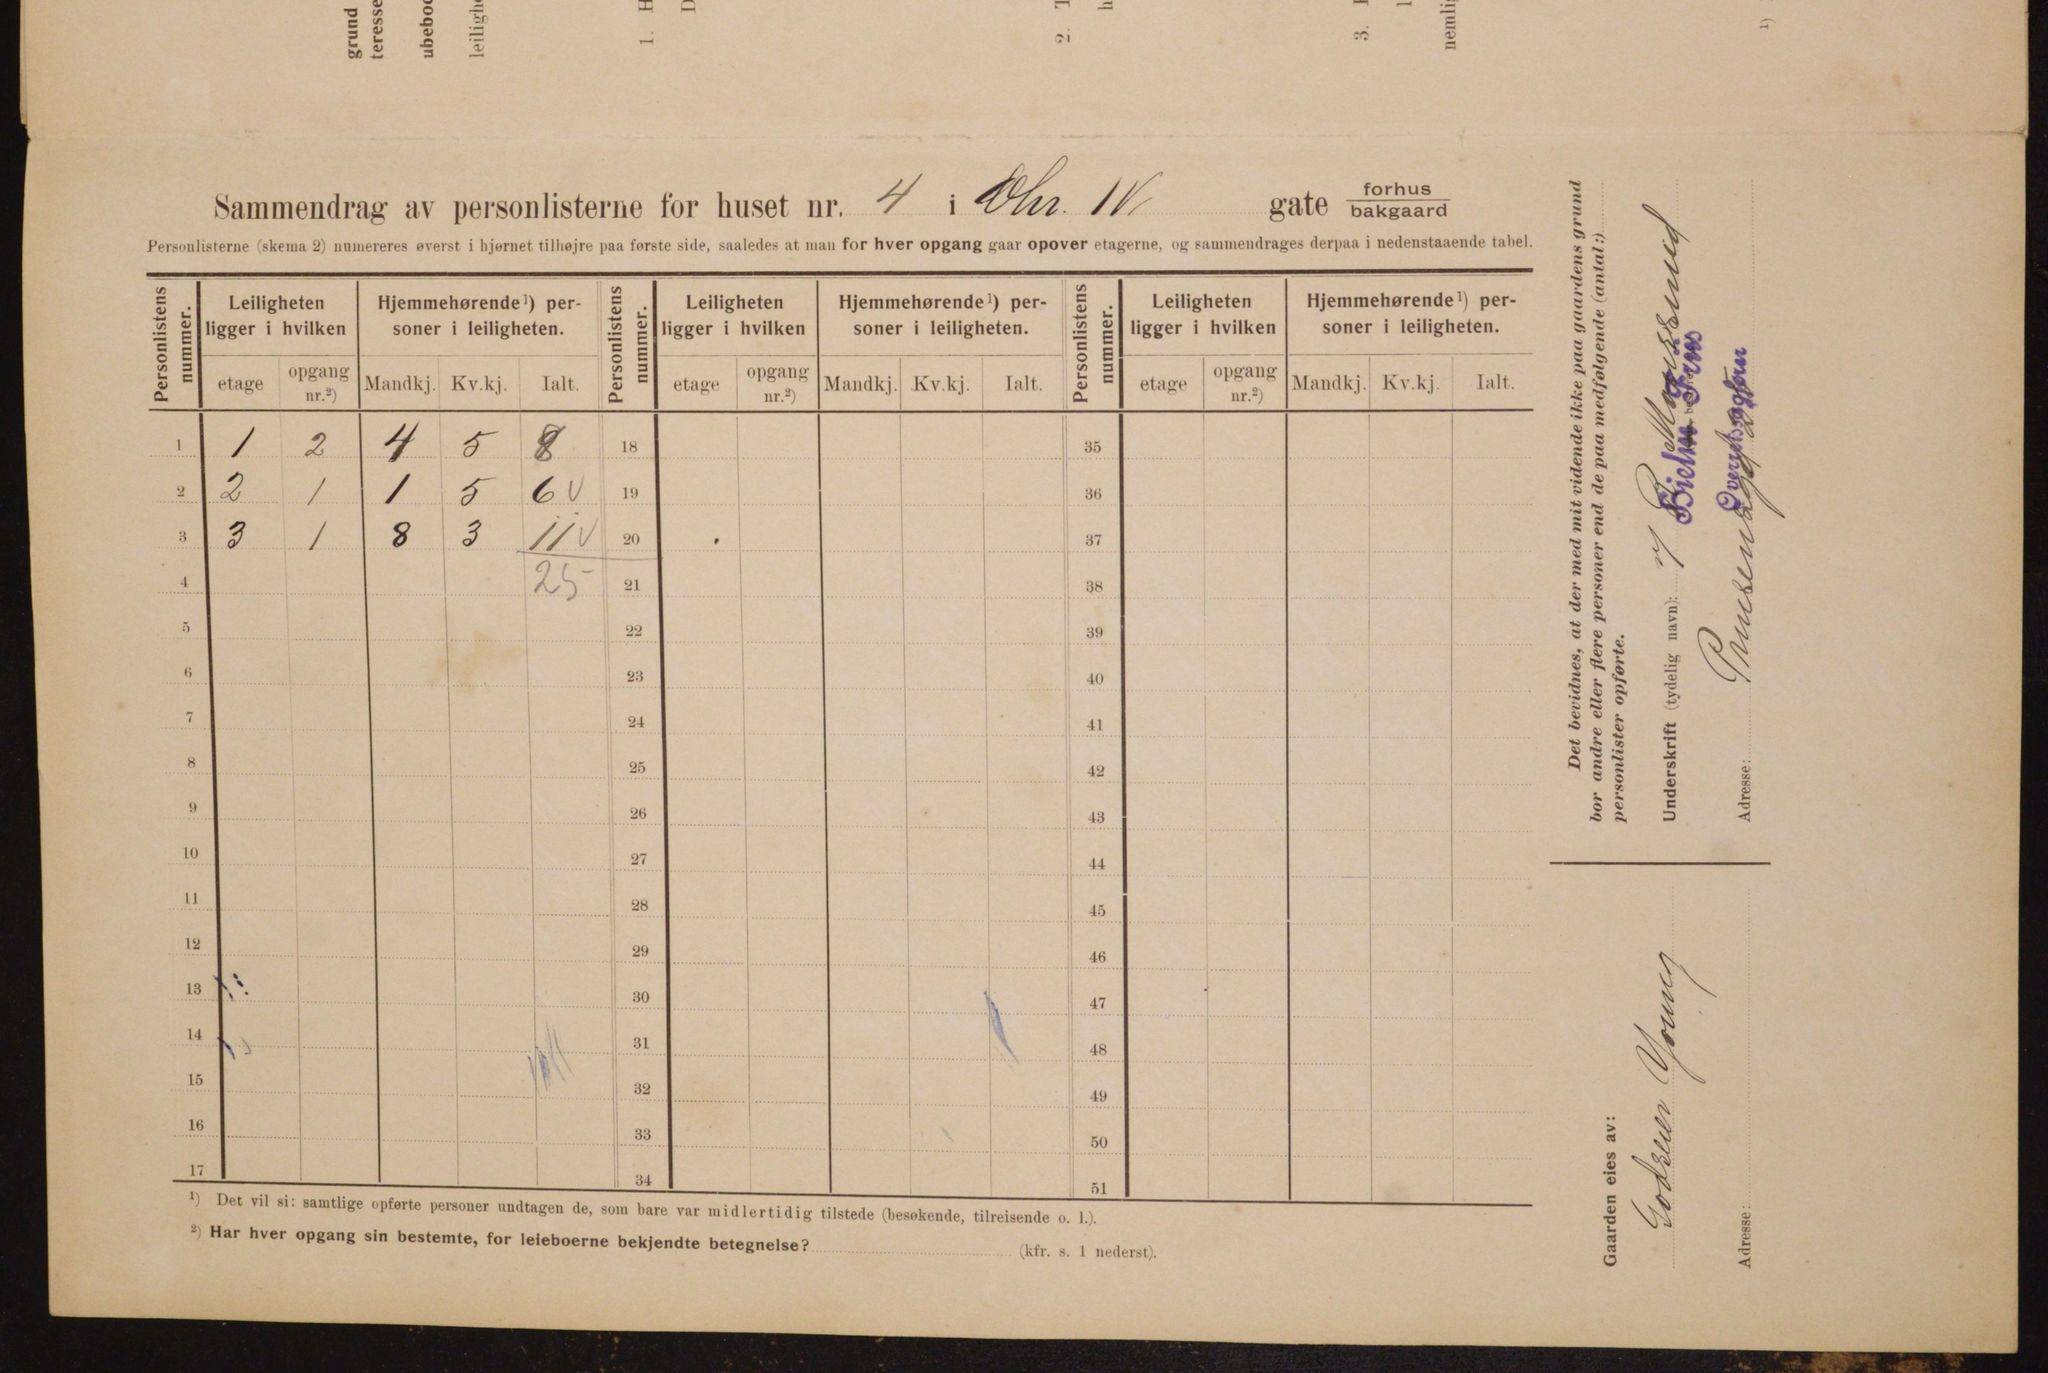 grund
teresse
ubeboe
leilighe
1. H
D
2. T
h
3.
nemlig
1)
Sammendrag av personlisterne for huset nr. 4 i Chr. IV gate forhus
bakgaard
Personlisterne (skema 2) numereres øverst i hjørnet tilhøjre paa første side, saaledes at man for hver opgang gaar opover etagerne, og sammendrages derpaa i nedenstaaende tabel.
Personlistens nummer. Leiligheten ligger i hvilken Hjemmehørende¹) personer i leiligheten. Personlistens nummer. Leiligheten ligger i hvilken Hjemmehørende¹) personer i leiligheten. Personlistens nummer. Leiligheten ligger i hvilken Hjemmehørende¹) personer i leiligheten.
etage opgang nr.²) Mandkj. Kv.kj. Ialt. etage opgang nr.²) Mandkj. Kv.kj. Ialt. etage opgang nr.²) Mandkj. Kv.kj. Ialt.
1 1 2 4 5 8 18 35
2 2 1 1 5 6 V 19 36
3 3 1 8 3 11 V 20 37
4 25 21 38
5 22 39
6 23 40
7 24 41
8 25 42
9 26 43
10 27 44
11 28 45
12 29 46
13 30 47
14 31 48
15 32 49
16 33 50
17 34 51
¹) Det vil si: samtlige opførte personer undtagen de, som bare var midlertidig tilstede (besøkende, tilreisende o. l.).
²) Har hver opgang sin bestemte, for leieboerne bekjendte betegnelse? (kfr. s. 1 nederst).
Det bevidnes, at der med mit vidende ikke paa gaardens grund
bor andre eller flere personer end de paa medfølgende (antal:)
personlister opførte.
Underskrift (tydelig navn):
Adresse: Prinsensgt
Gaarden eies av:
Godseier Young
Adresse: